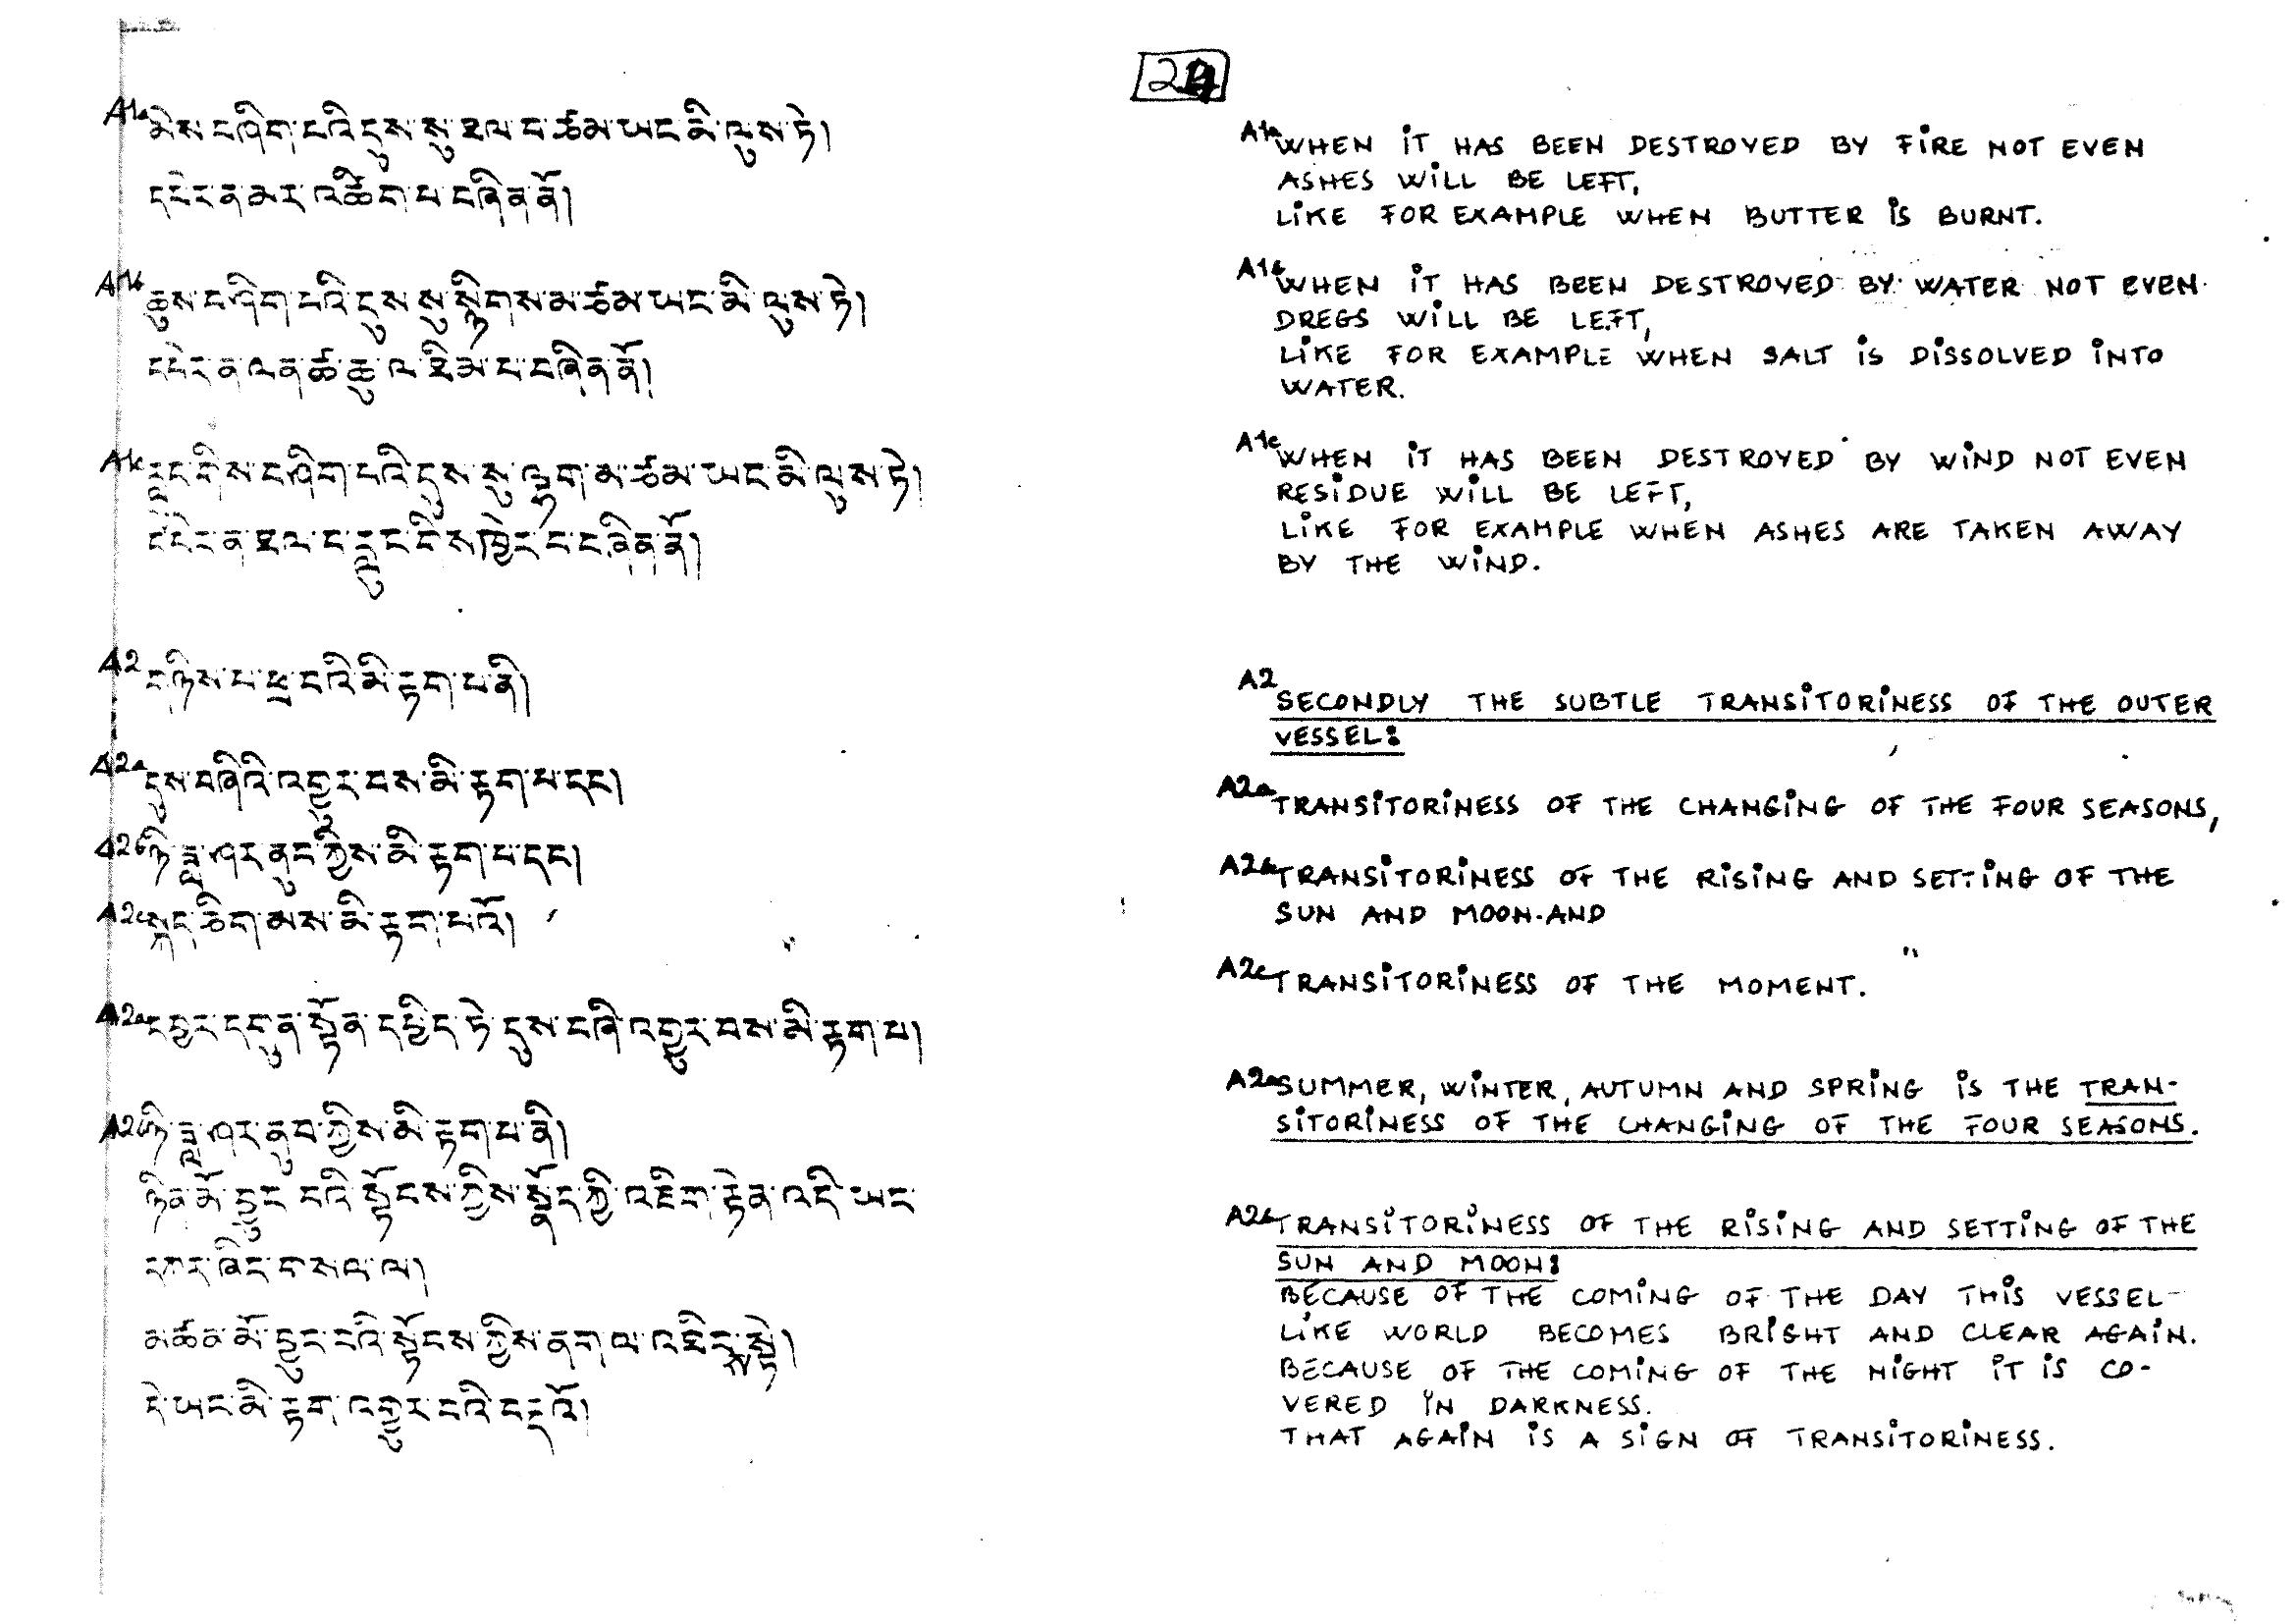 24
A1a མེས་བཤིག་པའི་དུས་སུ་ཐལ་བ་ཙམ་ཡང་མི་ལུས་ཏེ།
དཔེར་ན་མར་འཚིག་པ་བཞིན་ནོ།
A1b ཆུས་བཤིག་པའི་དུས་སུ་སྙིགས་མ་ཙམ་ཡང་མི་ལུས་ཏེ།
དཔེར་ན་ལན་ཚྭ་ཆུ་ལ་ཐིམ་པ་བཞིན་ནོ།
A1c རླུང་གིས་བཤིག་པའི་དུས་སུ་ལྷག་མ་ཙམ་ཡང་མི་ལུས་ཏེ།
དཔེར་ན་ཐལ་བ་རླུང་གིས་ཁྱེར་བ་བཞིན་ནོ།
A2 གཉིས་པ་ཕྲ་བའི་མི་རྟག་པ་ནི།
A2a དུས་བཞིའི་འགྱུར་བས་མི་རྟག་པ་དང།
A2b ཉི་ཟླ་ཤར་ནུབ་ཀྱིས་མི་རྟག་པ་དང།
A2c སྐད་ཅིག་མས་མི་རྟག་པའོ།
A2a དབྱར་དགུན་སྟོན་དཔྱིད་ཏེ་དུས་བཞི་འགྱུར་བས་མི་རྟག་པ།
A2b ཉི་ཟླ་ཤར་ནུབ་ཀྱིས་མི་རྟག་པ་ནི།
ཉིན་མོ་བྱུང་བའི་སྟོབས་ཀྱིས་སྣོད་ཀྱི་འཇིག་རྟེན་འདི་ཡང་
དཀར་ཞིང་གསལ་ལ།
མཚན་མོ་བྱུང་བའི་སྟོབས་ཀྱིས་ནག་ལ་འཐིབ་སྟེ།
དེ་ཡང་མི་རྟག་འགྱུར་བའི་བརྡའོ།
A1a WHEN IT HAS BEEN DESTROYED BY FIRE NOT EVEN
ASHES WILL BE LEFT,
LIKE FOR EXAMPLE WHEN BUTTER IS BURNT.
A1b WHEN IT HAS BEEN DESTROYED BY WATER NOT EVEN
DREGS WILL BE LEFT,
LIKE FOR EXAMPLE WHEN SALT IS DISSOLVED INTO
WATER.
A1c WHEN IT HAS BEEN DESTROYED BY WIND NOT EVEN
RESIDUE WILL BE LEFT,
LIKE FOR EXAMPLE WHEN ASHES ARE TAKEN AWAY
BY THE WIND.
A2 SECONDLY THE SUBTLE TRANSITORINESS OF THE OUTER
VESSEL:
A2a TRANSITORINESS OF THE CHANGING OF THE FOUR SEASONS,
A2b TRANSITORINESS OF THE RISING AND SETTING OF THE
SUN AND MOON AND
A2c TRANSITORINESS OF THE MOMENT.
A2a SUMMER, WINTER, AUTUMN AND SPRING IS THE TRAN-
SITORINESS OF THE CHANGING OF THE FOUR SEASONS.
A2b TRANSITORINESS OF THE RISING AND SETTING OF THE
SUN AND MOON:
BECAUSE OF THE COMING OF THE DAY THIS VESSEL-
LIKE WORLD BECOMES BRIGHT AND CLEAR AGAIN.
BECAUSE OF THE COMING OF THE NIGHT IT IS CO-
VERED IN DARKNESS.
THAT AGAIN IS A SIGN OF TRANSITORINESS.